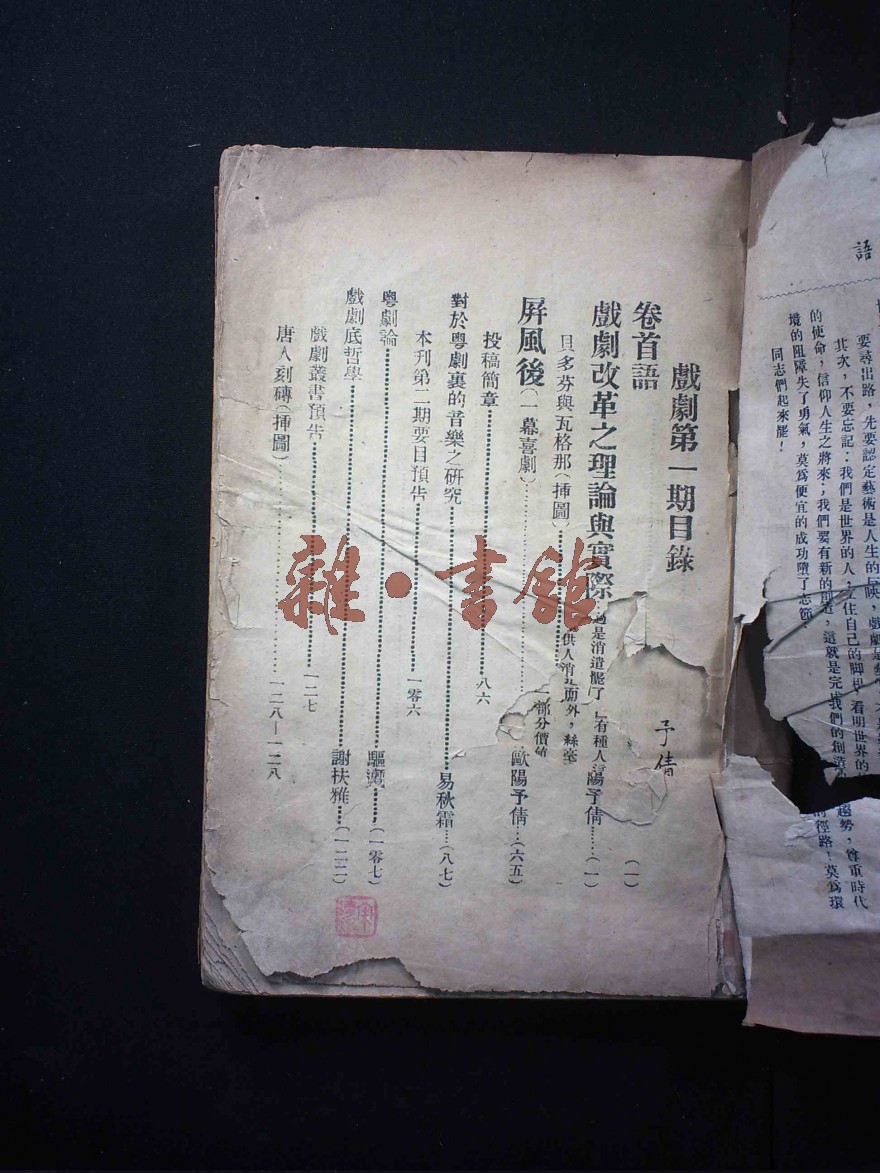 語
要尋出路，先要認定藝術是人生的反映，戲劇是藝
其次，不要忘記：我們是世界的人，立住自己的脚根，看明世界的趨勢，尊重時代
的使命，信仰人生之將來；我們要有新的創造，這就是完成我們的創造的徑路！莫爲環
境的阻障失了勇氣，莫爲便宜的成功墮了志節
同志們起來罷！
戲劇第一期目錄
卷首語 予倩 （一）
戲劇改革之理論與實際 陽予倩……（一）
過是消遣罷了 有種人
供人消 而外，絲毫
一部分價值
貝多芬與瓦格那（挿圖）
屛風後（一幕喜劇）……歐陽予倩…（六五）
投稿簡章……八六
對於粤劇裏的音樂之硏究……易秋霜……（八七）
本刊第二期要目預告……一零六
粤劇論……驅 ……（一零七）
戲劇底哲學……謝扶雅……（一二二）
戲劇叢書預告……一二七
唐人刻磚（挿圖）……一二八—一二八
雜·書館